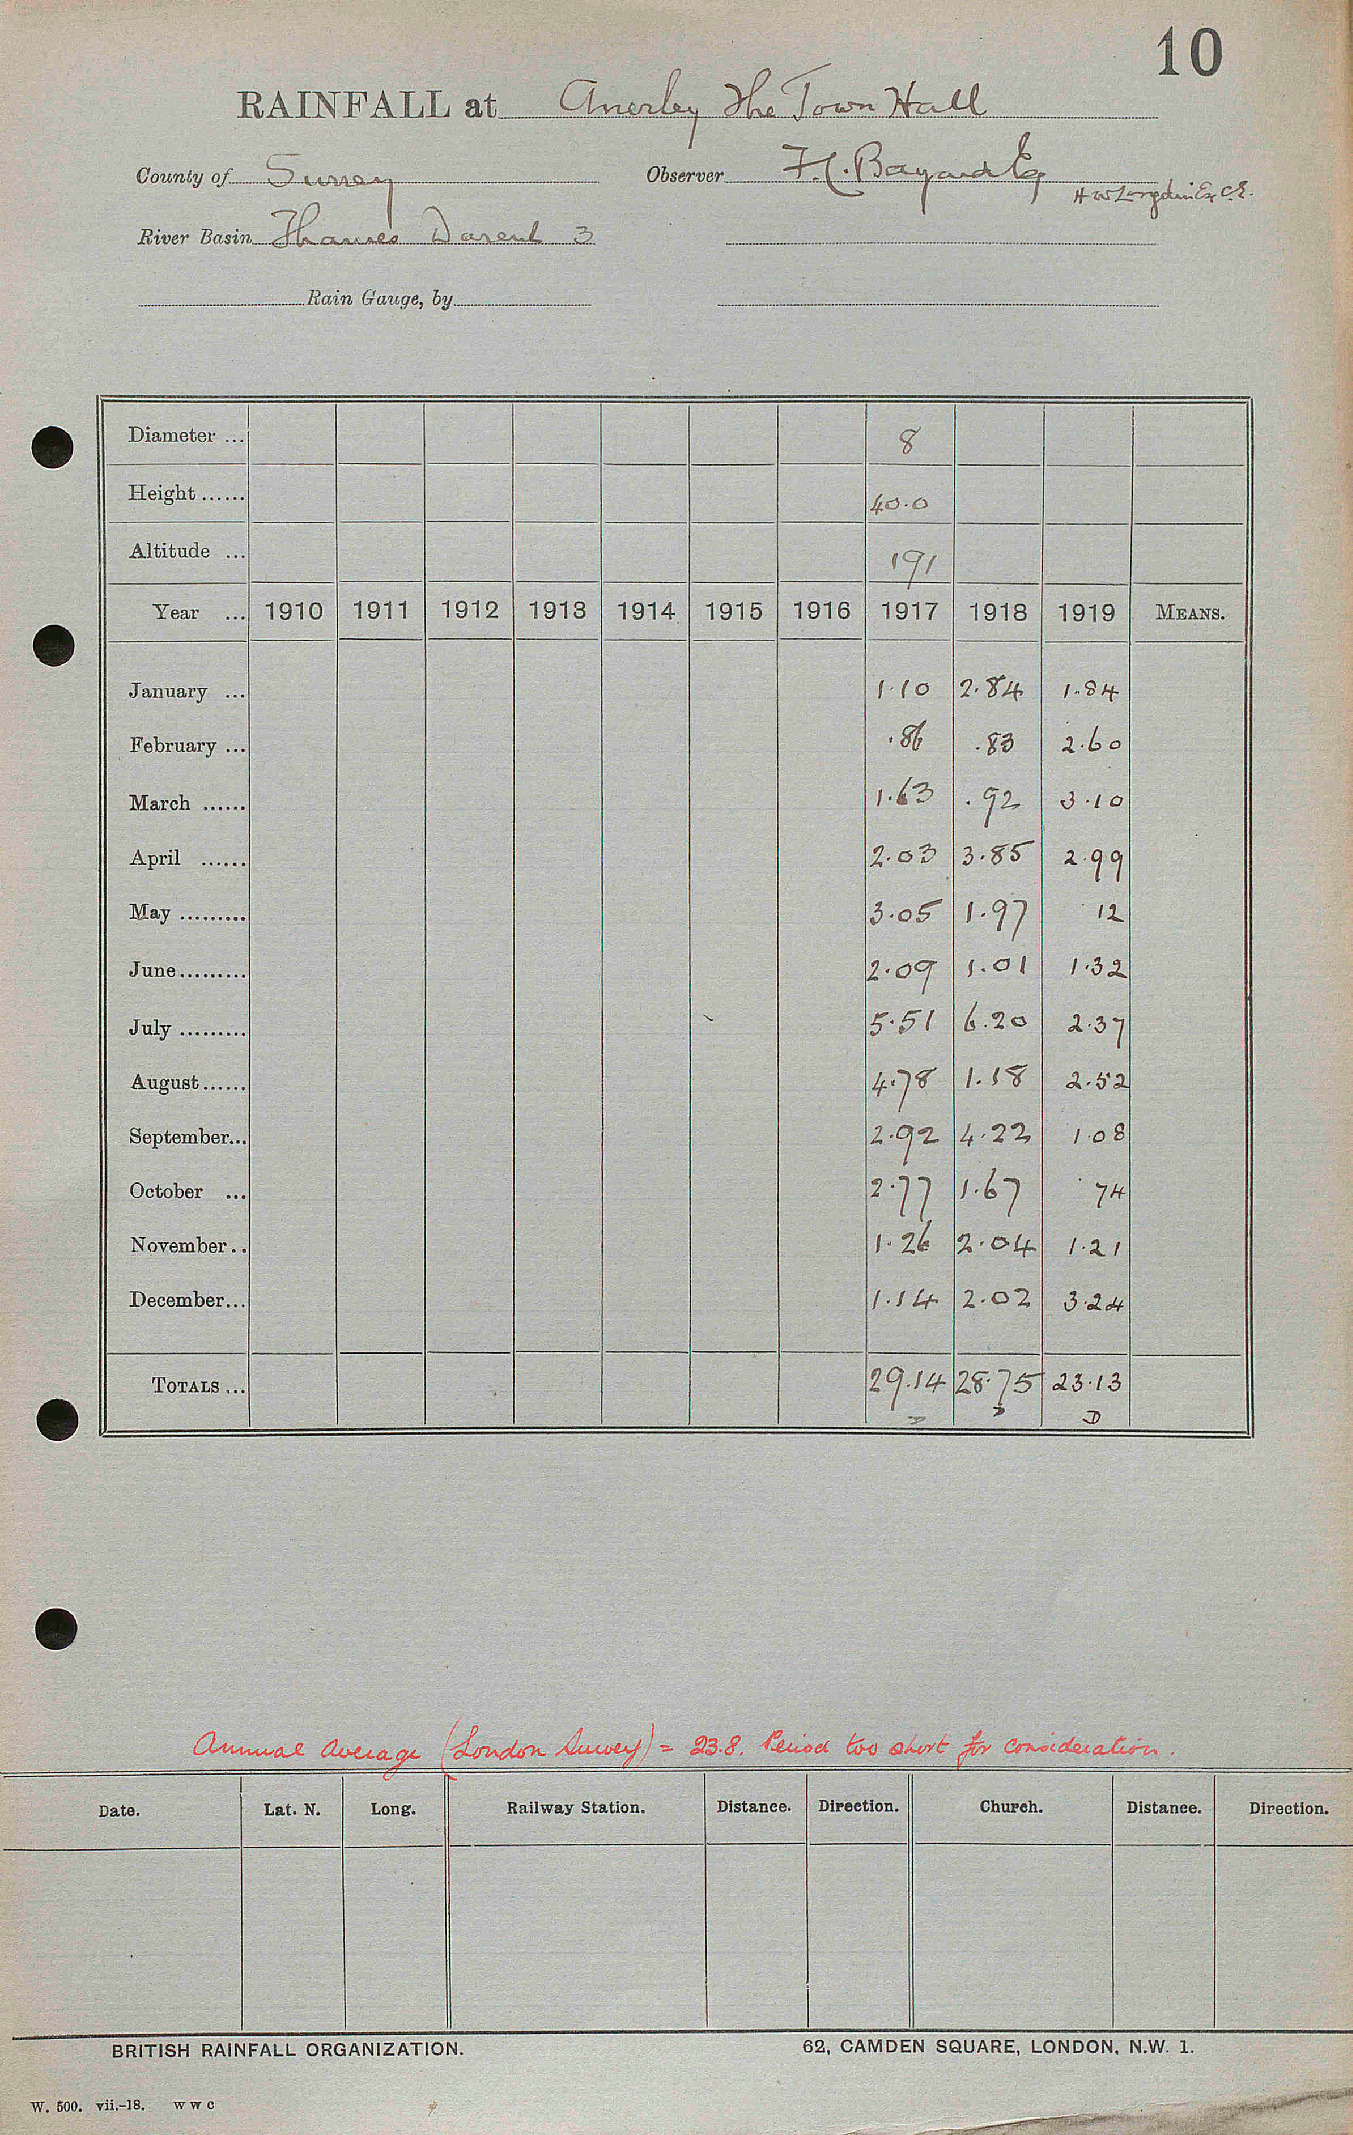 10
RAINFALL at Anerley The Town Hall
County of Surrey Observer F.C. Bayard Esq
H W Longdin Esq C.E.
River Basin Thames Darent 3
Rain Gauge, by
Diameter ... 8
Height ...... 40.0
Altitude ... 191
Year ... 1910 1911 1912 1913 1914 1915 1916 1917 1918 1919 MEANS.
January ... 1.10 2.84 1.84
February ... .86 .83 2.60
March ...... 1.63 .92 3.10
April ...... 2.03 3.85 2.99
May ......... 3.05 1.97 .12
June......... 2.09 1.01 1.32
July ......... 5.51 6.20 2.37
August...... 4.78 1.18 2.52
September... 2.92 4.22 1.08
October ... 2.77 1.67 .74
November.. 1.26 2.04 1.21
December... 1.14 2.02 3.24
TOTALS ... 29.14 28.75 23.13
D D D
Annual Average (London Survey) = 23.8. Period too short for consideration.
Date. Lat. N. Long. Railway Station. Distance. Direction. Church. Distance. Direction.
BRITISH RAINFALL ORGANIZATION. 62, CAMDEN SQUARE, LONDON, N.W. 1.
W. 500. vii.-18. W W C